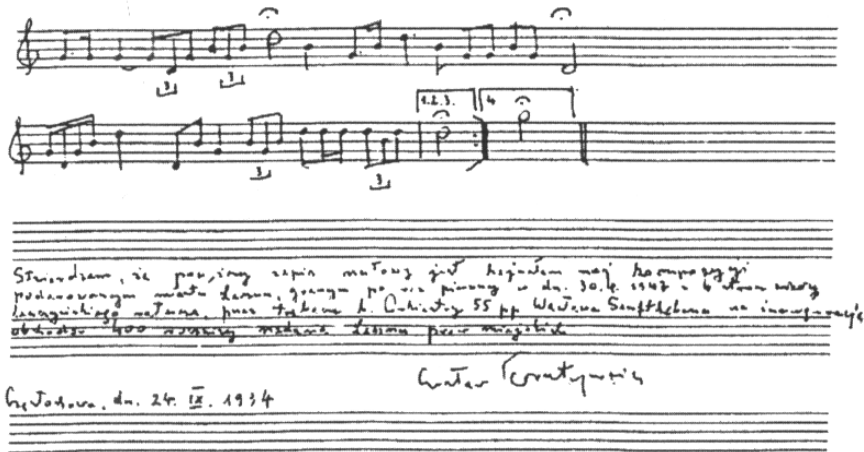 3 3
1.2.3. 4
3 3
Stwierdzam, że powyższy zapis nutowy jest hejnałem mej kompozycji
podarowanym miastu granym po raz pierwszy w dn. 30.4.1947 z 4 stron wieży
ratusza, przez trębacza b. Orkiestry 55 pp Wacława na inaugurację
obchodów 400 rocznicy nadania Lesznu praw miejskich
Częstochowa, dn. 24. IX. 1934